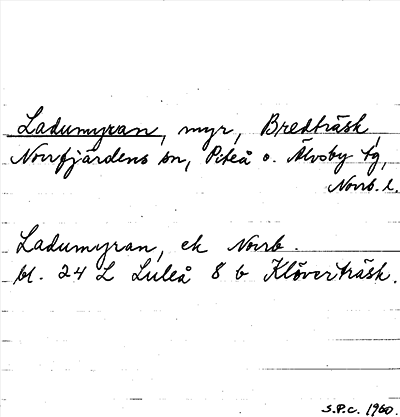 Ladumyran, myr, Bredträsk,
Norrfjärdens sn, Piteå o. Älvsby tg,
Norrb. l.
Ladumyran, ek Norrb.
bl. 24 L Luleå 8 b Klöverträsk.
S.P.C. 1960.